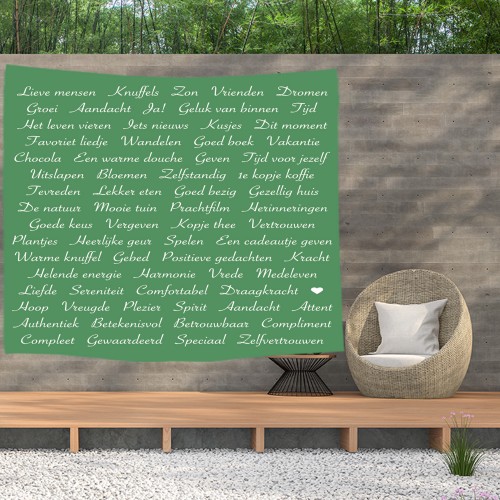 Lieve mensen Knuffels Zon Vrienden Dromen
Groei Aandacht Ja! Geluk van binnen Tijd
Het leven vieren Iets nieuws Kusjes Dit moment
Favoriet liedje Wandelen Goed boek Vakantie
Chocola Een warme douche Geven Tijd voor jezelf
Uitslapen Bloemen Zelfstandig 1e kopje koffie
Tevreden Lekker eten Goed bezig Gezellig huis
De natuur Mooie tuin Prachtfilm Herinneringen
Goede keus Vergeven Kopje thee Vertrouwen
Plantjes Heerlijke geur Spelen Een cadeautje geven
Warme knuffel Gebed Positieve gedachten Kracht
Helende energie Harmonie Vrede Medeleven
Liefde Sereniteit Comfortabel Draagkracht
Hoop Vreugde Plezier Spirit Aandacht Attent
Authentiek Betekenisvol Betrouwbaar Compliment
Compleet Gewaardeerd Speciaal Zelfvertrouwen